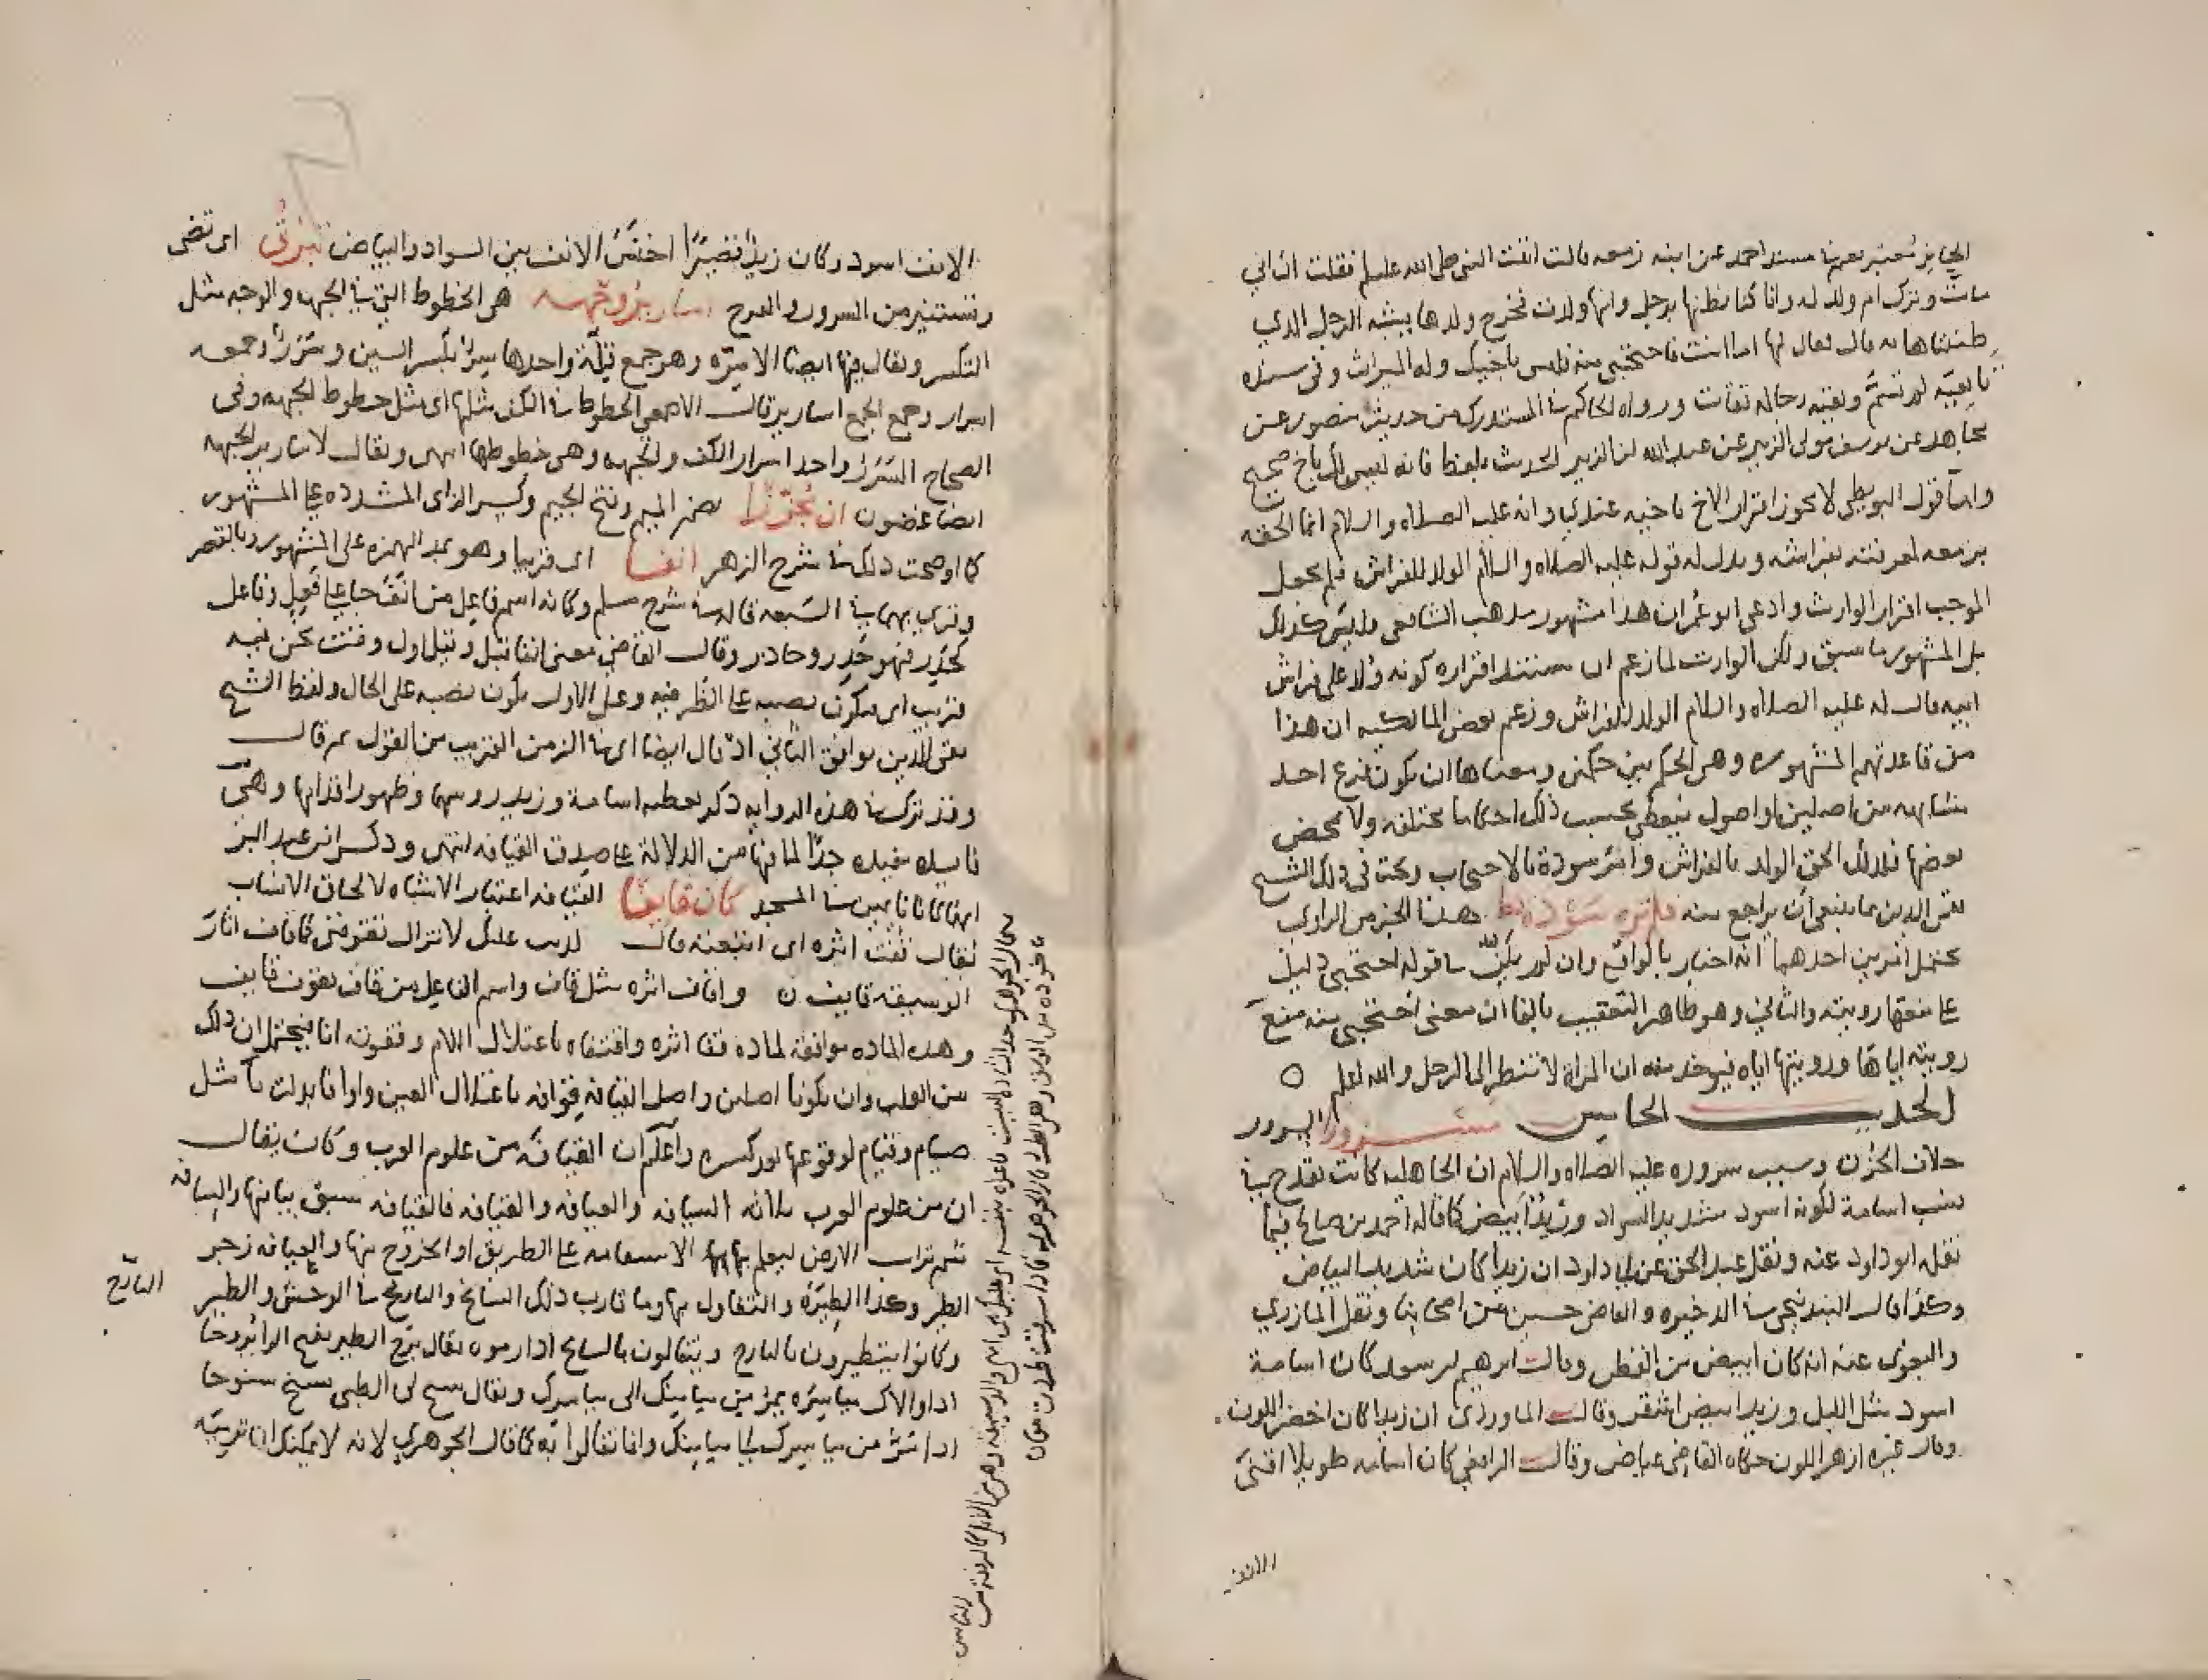 مسند احمد عن ابنة زمعه قالت اتيت النبي صلى الله عليه وسلم فقلت ان ابي
مات وترك ام ولد له وانا كنا نظنها برجل وانها ولدت فخرج ولدها يشبه الرجل الذي
ظنناها به قال فقال لها اما انت فاحتجبي منه فليس باخيك وله الميراث وفي سنده
تابعية لم تسم وبقية رجاله ثقات ورواه الحاكم في المستدرك من حديث منصور عن
مجاهد عن يوسف مولى الزبير عن عبد الله بن الزبير الحديث بلفظ فانه ليس لك باخ صحيح
واما قول البويطي لا يجوز اقرار الاخ باخيه عندي وانه عليه الصلاه والسلام انما الحقه
بزمعه لمعرفته بفراشه ويدل له قوله عليه الصلاه والسلام الولد للفراش فلم يجعل
الموجب اقرار الوارث وادعى ابو عمر ان هذا مشهور مذهب الشافعي وليس كذلك
بل المشهور ما سبق ولكن الوارث لما زعم ان مستند اقراره كونه ولد على فراش
ابيه قال له عليه الصلاه والسلام الولد للفراش وزعم بعض المالكيه ان هذا
من قاعدتهم المشهوره وهي الحكم بين حكمين ومعناها ان يكون فرع احد
مشابهه من اصلين او اصول فيعطي بحسب ذلك احكاما مختلفه ولا يمحض
بعضها فلذلك الحق الولد بالفراش وامر سودة بالاحتجاب وبحث في ذلك الشيخ
تقي الدين بما ينبغي ان يراجع منه فلم تره سودة قط هذا الخبر من الراوي
يحتمل امرين احدهما انه اخبار بالواقع وان لم يكن في قوله احتجبي دليل
على منعها رويته والثاني وهو ظاهر التعقيب بالفا ان معنى احتجبي منه منع
رويته اياها ورويتها اياه فيوخذ منه ان المراة لا تنظر الى الرجل والله اعلم
الحديث الخامس مسرورا السرور
خلاف الحزن وسبب سروره عليه الصلاه والسلام ان الجاهليه كانت تقدح في
نسب اسامة لكونه اسود شديد السواد وزيد ابيض كما قاله احمد بن صالح فيما
نقله ابو داود عنه ونقل عبد الحق عن ابي داود ان زيدا كان شديد البياض
وكذا قال البندنيجي في الذخيره والقاضي حسين من اصحابنا ونقل المازري
والبغوي عنه انه كان ابيض من القطن وقالت ابرهيم بن سعد كان اسامة
اسود مثل الليل وزيد ابيض اشقر وقالت الماوردي ان زيدا كان اخضر اللون
وقال غيره ازهر اللون حكاه القاضي عياض وقالت الرافعي كان اسامه طويلا اقنى
الانف
الانف اسود وكان زيد قصيرا اخنس الانف بين السواد والبياض تبرق اى تضى
وتستنير من السرور والفرح اسارير وجهه هى الخطوط التي في الجبهه والوجه مثل
التكسر ويقال فيها ايضا الاسره وهو جمع قلة واحدها سر بكسر السين وسرر وجمعه
اسرار وجمع الجمع اسارير قالت الاصمعي الخطوط في الكف مثلها اى مثل خطوط الجبهه وفى
الصحاح السرر واحد اسرار الكف والجبهه وهى خطوطها انتهى ويقال لاسارير الجبهه
ايضا غضون ان مجززا بضم الميم وفتح الجيم وكسر الزاى المشدده على المشهور
كما اوضحت ذلك في شرح الزهر انفا اى قريبا وهو بمد الهمزه على المشهور وبالقصر
وقرى بهما في السبعه قاله في شرح مسلم وكانه اسم فاعل من انف جا على فعل وفاعل
كحذر فهو حذر وحاذر وقالت القاضي معنى انفا قبل وقيل اول وقت نحن فيه
قريب اى فيكون نصبه على الظرفيه وعلى الاول يكون نصبه على الحال ولفظ الشيخ
تقى الدين يوافق الثاني اذ قال ايضا اى في الزمن القريب من القول ثم قالت
وقد ترك في هذه الروايه ذكر تغطيه اسامة وزيد رووسهما وظهور اقدامهما وهى
فايده مفيده جدا لما فيها من الدلالة على صدق القيافه انتهى وذكر ابن عبد البر
انهما كانا نايمين في المسجد كان قايفا القيافه اعتبار الاشباه لالحاق الانساب
يقال قفت اثره اى اتبعته قالت كذبت عليك لا تزال تقوفني كما قاف اثار
الوسيقه قايف ٥ واقاف اثره مثل قاف واسم الفاعل من قاف يقوف قايف
وهذه الماده موافقه لماده قفا اثره واقتفاه باعتلال اللام وقفوته انا فيحتمل ان ذلك
من القلب وان يكونا اصلين واصل القيافه قوافه باعتلال العين واوا فابدلت يا مثل
صيام وقيام لوقوعها بعد كسره واعلم ان القيافه من علوم العرب وكان يقال
ان من علوم العرب ثلاثه السيافه والعيافه والقيافه فالقيافه سبق بيانها والسيافه
شم تراب الارض ليعلم بها الاستقامه على الطريق او الخروج منها والعيافه زجر
الطير وكذا الطيره والتفاول بها وما قارب ذلك السانح والبارح في الوحش والطير
البارح
وكانوا يتطيرون بالبارح ويتفالون بالسانح اذا رموه يقال برح الطير بفتح الرا بروحا
اذا ولاك مياسره يمر من ميامنك الى مياسرك ويقال سنح لي الظبي سنح سنوحا
اذا مر من مياسرك الى ميامنك وانما تفالوا به كما قال الجوهري لانه لا يمكنك ان ترميه